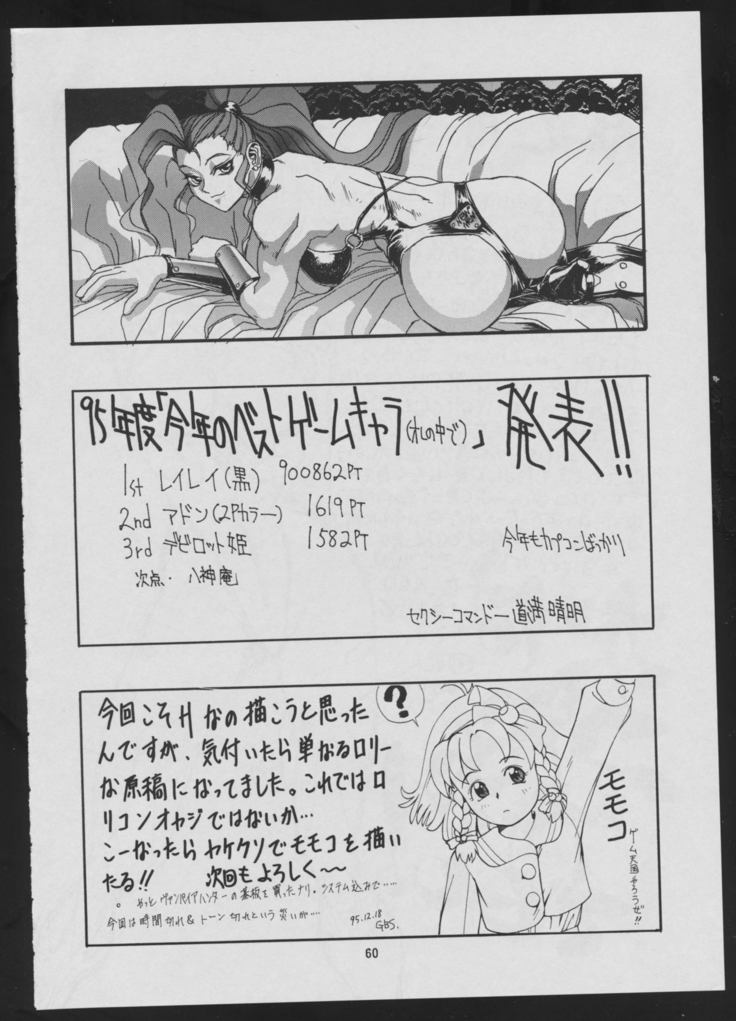 95年度「今年のベストゲームキャラ(オレの中で)」発表!!
1st レイレイ(黒) 900862PT
2nd アドン(2Pカラー) 1619PT
3rd デビロット姫 1582PT
次点・八神庵
今年もカプコンばっかり
セクシーコマンドー道満晴明
今回こそHなの描こうと思った
んですが、気付いたら単なるロリー
な原稿になってました。これではロ
リコンオヤジではないか…
こーなったらヤケクソでモモコを描い
たる!! 次回もよろしく〜
。やっとヴァンパイアハンターの基板を買ったナリ。システム込みで……
今回は時間切れ&トーン切れという災いが…
95.12.18
GBS.
?
モモコ
ゲーム天国やろうぜ!!
60